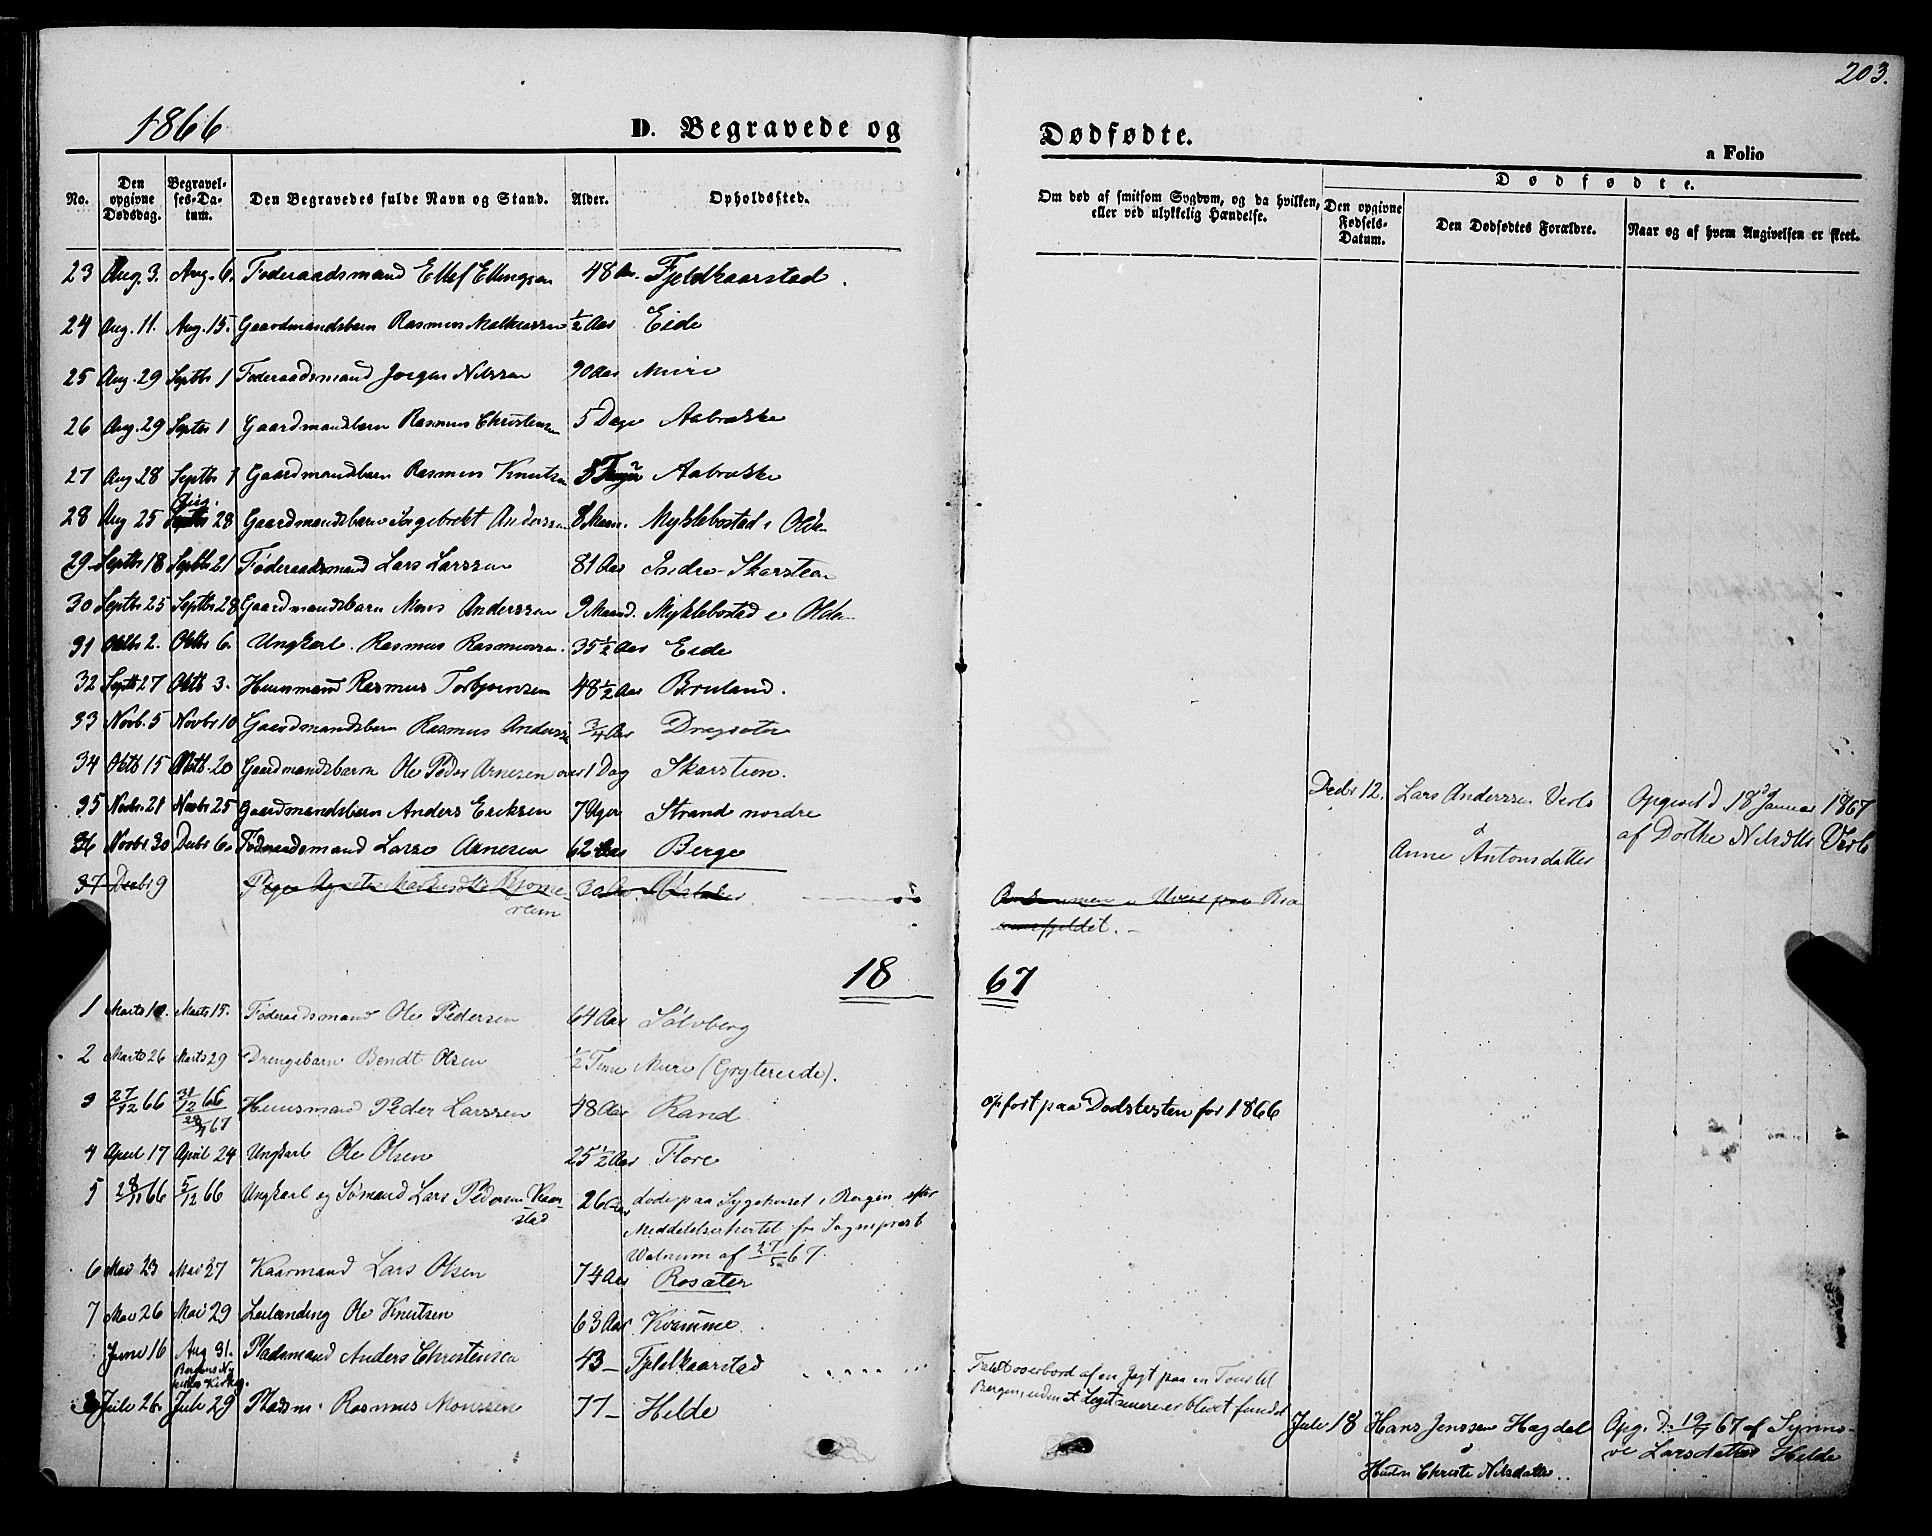 203.
1866
D. Begravede og Dødfødte.
a Folio
No.
Den opgivne Dødsdag.
Begravelses-Datum.
Den Begravedes fulde Navn og Stand.
Alder.
Opholdssted.
Om død af smitsom Sygdom, og da hvilken, eller ved ulykkelig Hændelse.
Dødfødte.
Den opgivne Fødsels-Datum.
Den Dødfødtes Forældre.
Naar og af hvem Angivelsen er skeet.
23 Aug. 3. Aug. 6. Føderaadsmand Ellef Ellingsen 48 Aar. Fjeldkaarstad.
24 Aug. 11. Aug. 15. Gaardmandsbarn Rasmus 1/2 Aar Eide
25 Aug. 29 Septbr 1 Føderaadsmand Jørgen Nilssen 90 Aar Muri
26 Aug. 29 Septbr 1 Gaardmandsbarn Rasmus Christensen 5 Dage Aabrække
27 Aug 28 Septbr 1 Gaardmandsbarn Rasmus Knutsen Aabrække
28 Aug 25 28 Gaardmandsbarn Ingebrekt Anderssen 8 Maan. Myklebostad i Olden
29 Septbr 18 Septbr 21 Føderaadsmand Lars Larssen 81 Aar Indre Skarsteen
30 Septbr 25 Septbr 28 Gaardmandsbarn Mons Anderssen 9 Maand. Myklebostad i Olden
31 Oktbr 2. Oktbr 6. Ungkarl. Rasmus Rasmussen. 35 1/2 Aar Eide
32 Septbr 27 Oktb 3. Huusmand Rasmus Torbjørnsen 48 1/2 Aar Bruland.
33 Novb. 5 Novbr 10 Gaardmandsbarn Rasmus Anderssen 3/4 Aar Dregseter
34 Oktb 15 Oktb. 20 Gaardmandsbarn Ole Peder Arnesen over 1 Dag Skarsteen.
35 Novbr. 21 Novbr 25 Gaardmandsbarn Anders Eriksen 7 Uger Strand nordre
Decbr 12. Lars Anderssen Verlo
&
Anne Antonsdatter
Opgivet d. 18d Januar 1867
af Dorthe Nilsdtr Verlo
36 Novbr 30 Decbr 6. Føderaadsmand Lasse Arnesen 62 Aar Berge
37 Decbr 9 Pige
1867
1 Marts 10. Marts 15. Føderaadsmand Ole Pedersen 64 Aar Sølvberg
2 Marts 26 Marts 29 Drengebarn Bendt Olsen 1/2 Time Muri (Grytereide).
3 27/12 66 31/12 66 Huusmand Peder Larssen 48 Aar Rand opført paa Dødslisten for 1866
4 April 17 April 24 Ungkarl Ole Olsen 25 1/2 Aar Flore
5 28/11 66 5/12 66 Ungkarl og Sømand Lars Pedersen Kaarstad 26 Aar døde paa Sygehuset i Bergen efter
Meddelelse fra Sognepræst
af 27/5 67.
6 Mai 23 Mai 27 Kaarmand Lars Olsen 74 Aar Rosæter
7 Mai 26 Mai 29 Leilænding Ole Knutsen 63 Aar Kvamme.
Juni 16 Aug 31. Pladsmand Anders Christensen 43 — Fjeldkaarstad
Faldt overbord af en Jagt paa en Tour til
Bergen, uden at Liget
8 Juli 26. Juli 29 Pladsm. Rasmus Monssen 77 — Hilde
Juli 18 Hans Jenssen Hægdal
&
Hustru Christi Nilsdatter.
Opg. D. 19/7 67 af Synnove Larsdatter Hilde